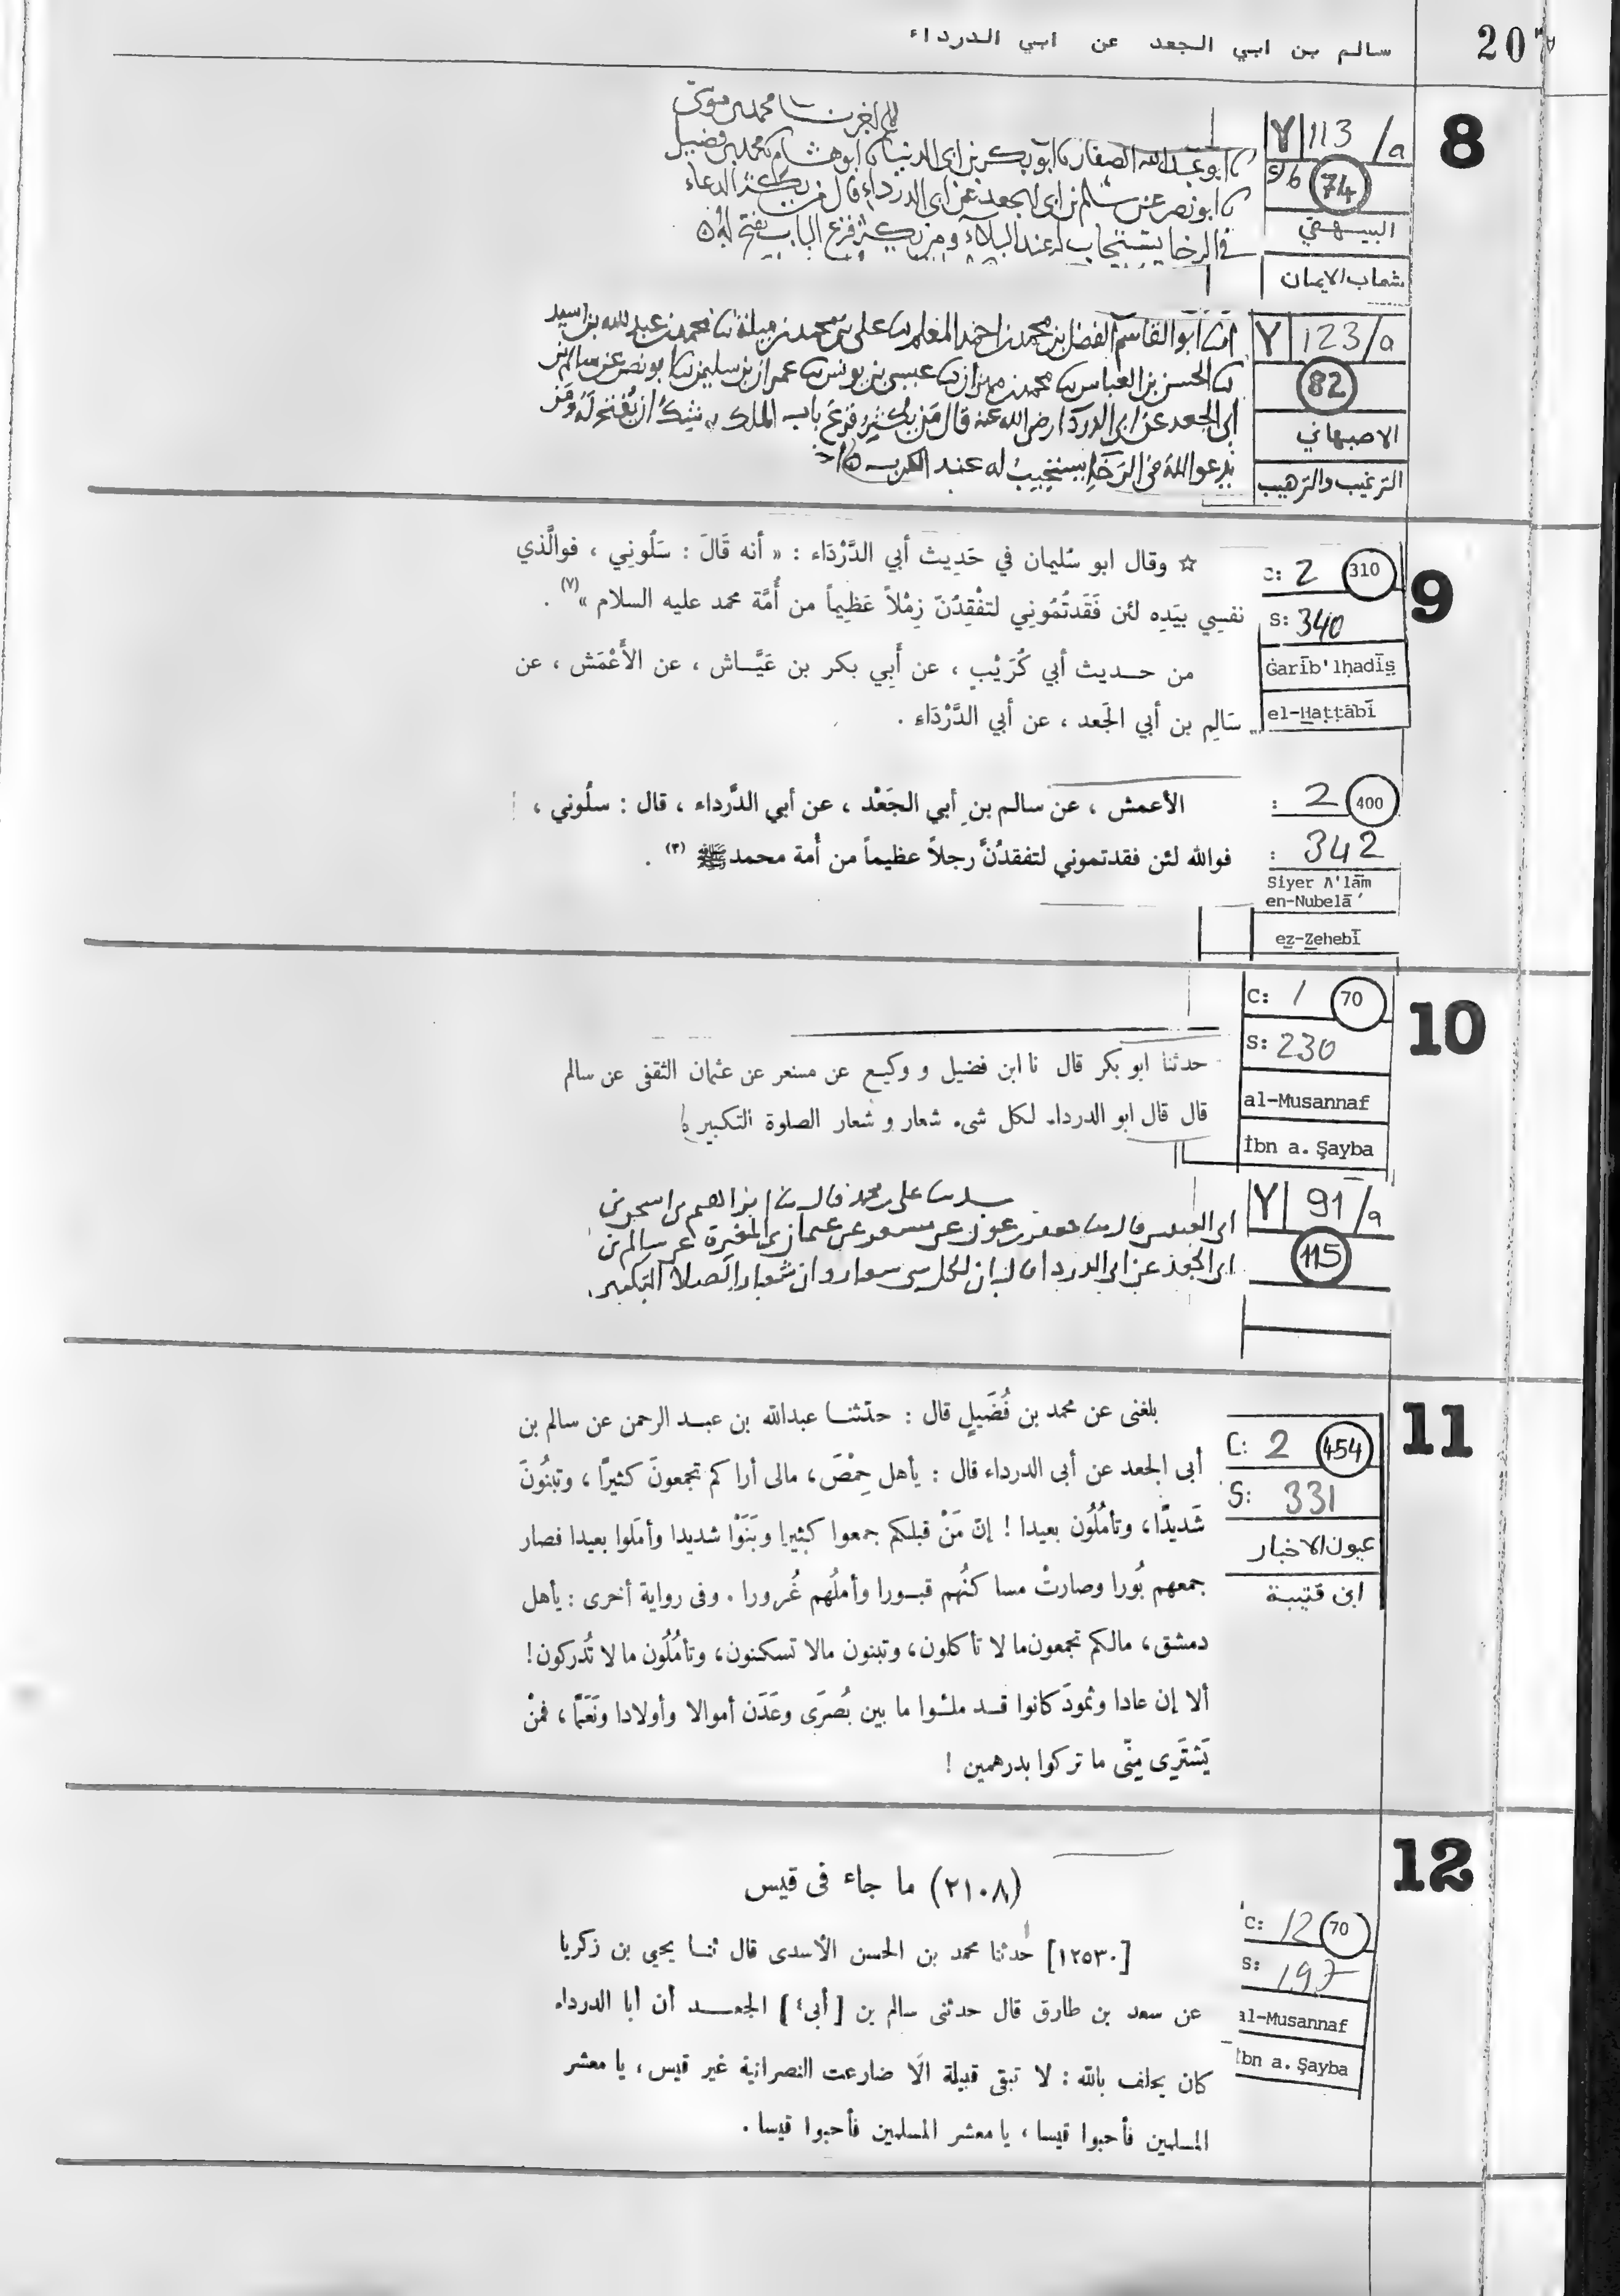 سالم بن ابي الجعد عن ابي الدرداء
20
8
Y 113/a
74
البيهقي
شعاب الايمان
ابو عبد الله الصفار ابو بكر بن ابي الدنيا ابو هشام محمد بن فضيل
ابو نصر عن سالم بن ابي الجعد عن ابي الدرداء قال من يكثر الدعاء
في الرخا يستجاب له عند البلاء ومن يكثر قرع الباب يفتح له
Y 123/a
82
الاصبهاني
الترغيب والترهيب
ابو القاسم الفضل بن محمد بن احمد المعلم علي بن محمد بن ميلة محمد بن عبد الله بن اسيد
الحسن بن العباس محمد بن مهران عيسى بن يونس عمران بن سليمن ابو نصر عن سالم بن
ابي الجعد عن ابي الدردا رضى الله عنه قال مَن يُكثِرُ قرعَ باب الملك يوشك ان يُفتح لَهُ ومَن
يدعو الله في الرَخَا يستجيبُ له عند الكرب
9
C: 2 310
S: 340
Ġarīb'lḥadīs̱
el-Ḫaṭṭābī
☆ وقال ابو سُليمان في حَدِيث أبي الدَّرْدَاء : « أنه قَالَ : سَلُونِي ، فوالَّذي
نفسِي بيَدِه لئن فَقَدتُمُونِي لتفْقِدُنّ زِمْلاً عَظِيماً من أُمَّة محمد عليه السلام »(٧) .
من حـديث أبي كُرَيْبٍ ، عن أَبِي بكر بن عَيَّـاش ، عن الأَعْمَش ، عن
سَالِم بن أبي الجَعد ، عن أبي الدَّرْدَاء .
: 2 400
: 342
Siyer A'lām
en-Nubelā'
ez-Zehebī
الأعمش ، عن سالم بنِ أبي الجَعْد ، عن أبي الدَّرداء ، قال : سلُوني ،
فوالله لئن فقدتموني لتفقدُنَّ رجلاً عظيماً من أُمة محمد ﷺ (٣) .
10
C: 1 70
S: 230
al-Musannaf
İbn a. Şayba
حدثنا ابو بكر قال نا ابن فضيل و وكيع عن مسعر عن عثمان الثقفى عن سالم
قال قال ابو الدرداء لكل شىء شعار و شعار الصلوة التكبير
Y 91/a
115
على بن محمد قال ابراهيم بن اسحق بن
ابي العنبس قال جعفر بن عون عن مسعر عن عثمان بن المغيرة عن سالم بن
ابي الجعد عن ابي الدردا قال ان لكل شي شعار وان شعار الصلاة التكبير
11
C: 2 454
S: 331
عيون الاخبار
ابن قتيبة
بلغنى عن محمد بن فُضَيلٍ قال : حدّثنـا عبدالله بن عبـد الرحمن عن سالم بن
أبى الجعد عن أبى الدرداء قال : يأهل حِمْصَ، مالى أراكم تجمعونَ كثيرًا ، وتبنُونَ
شَديدًا، وتأمُلُون بعيدا ! إنّ مَنْ قبلكم جمعوا كثيرا وبَنَوْا شديدا وأملوا بعيدا فصار
جمعهم بُورا وصارتْ مساكنُهم قبـورا وأملُهم غُرورا . وفى رواية أخرى : يأهل
دمشق، مالكم تجمعون ما لا تأكلون، وتبنون مالا تسكنون، وتأمُلُون ما لا تُدركون!
ألا إن عادا وثمودَ كانوا قـد ملئـوا ما بين بُصرَى وعَدَن أموالا وأولادا ونَعَمًا، فمنْ
يَشترِى مِنّى ما تركوا بدرهمين !
12
C: 12 70
S: 197
al-Musannaf
İbn a. Şayba
(٢١٠٨) ما جاء فى قيس
[١٢٥٣٠] حدثنا محمد بن الحسن الأسدى قال ثنـا يحيى بن زكريا
عن سعد بن طارق قال حدثنى سالم بن [أبى٤] الجعـد أن أبا الدرداء
كان يحلف بالله : لا تبقى قبيلة الا ضارعت النصرانية غير قيس، يا معشر
المسلمين فأحبوا قيسا ، يا معشر المسلمين فأحبوا قيسا .